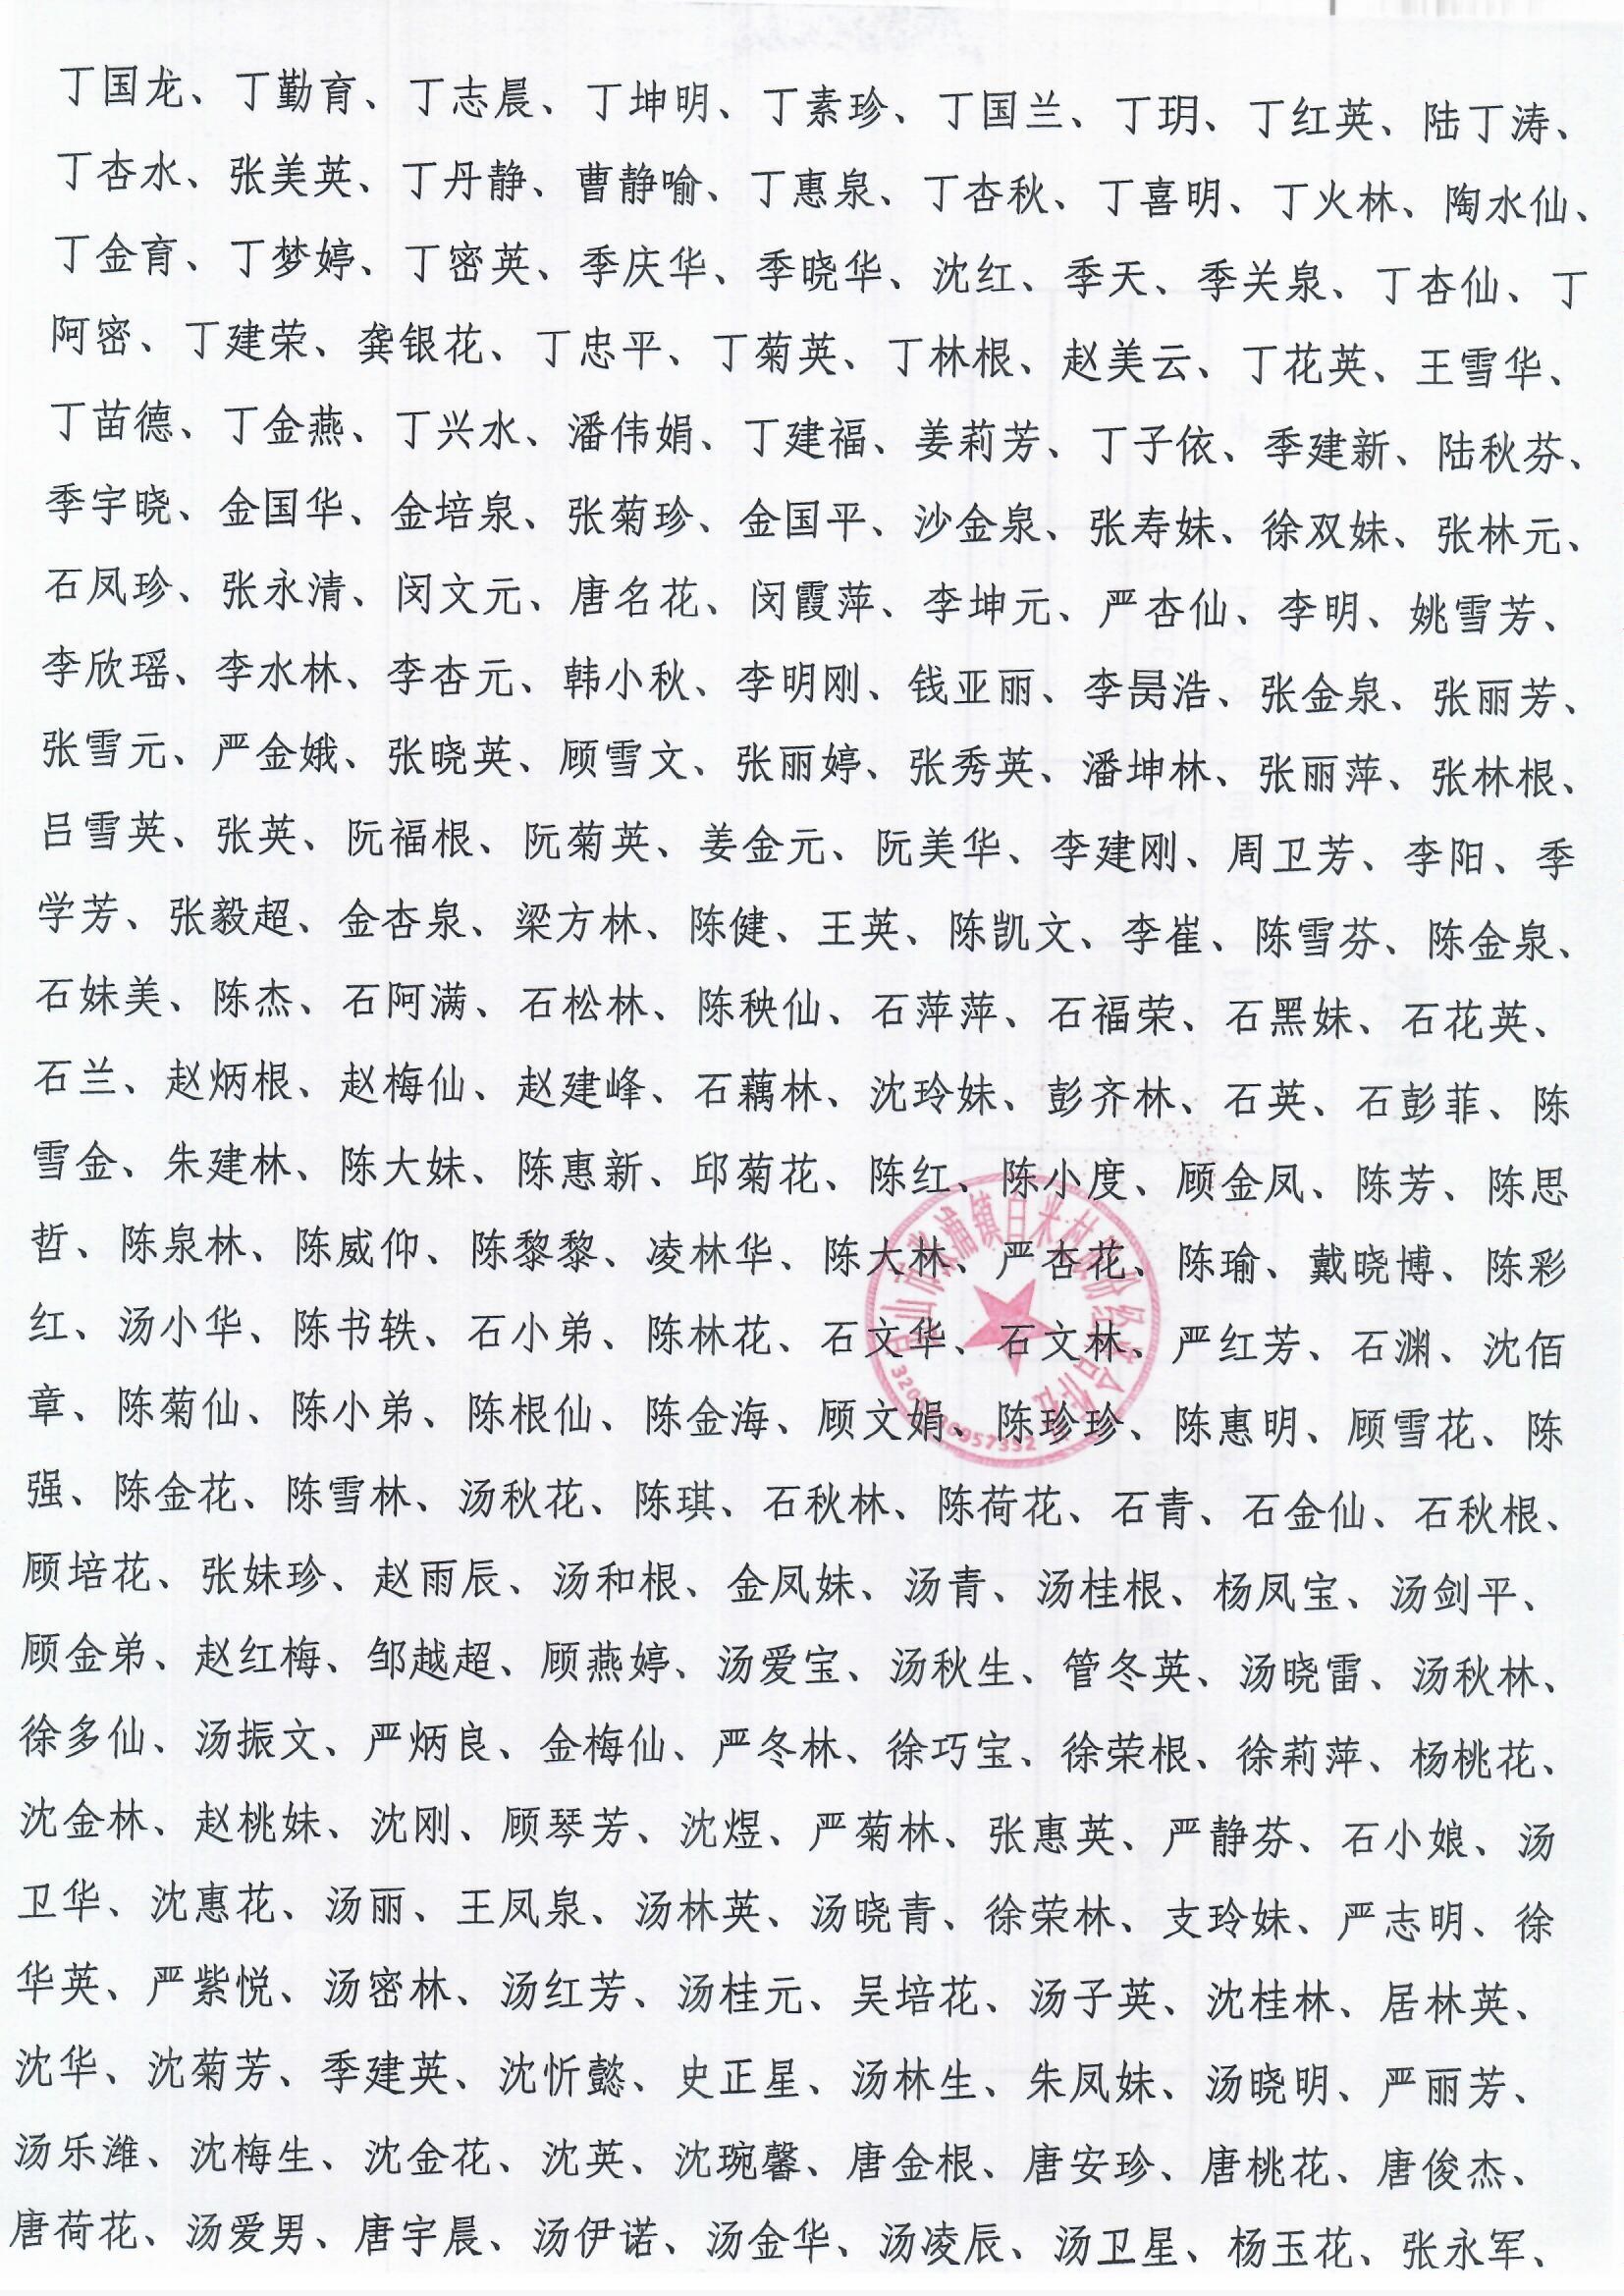 丁国龙、丁勤育、丁志晨、丁坤明、丁素珍、丁国兰、丁玥、丁红英、陆丁涛、
丁杏水、张美英、丁丹静、曹静喻、丁惠泉、丁杏秋、丁喜明、丁火林、陶水仙、
丁金育、丁梦婷、丁密英、季庆华、季晓华、沈红、季天、季关泉、丁杏仙、丁
阿密、丁建荣、龚银花、丁忠平、丁菊英、丁林根、赵美云、丁花英、王雪华、
丁苗德、丁金燕、丁兴水、潘伟娟、丁建福、姜莉芳、丁子依、季建新、陆秋芬、
季宇晓、金国华、金培泉、张菊珍、金国平、沙金泉、张寿妹、徐双妹、张林元、
石凤珍、张永清、闵文元、唐名花、闵霞萍、李坤元、严杏仙、李明、姚雪芳、
李欣瑶、李水林、李杏元、韩小秋、李明刚、钱亚丽、李昺浩、张金泉、张丽芳、
张雪元、严金娥、张晓英、顾雪文、张丽婷、张秀英、潘坤林、张丽萍、张林根、
吕雪英、张英、阮福根、阮菊英、姜金元、阮美华、李建刚、周卫芳、李阳、季
学芳、张毅超、金杏泉、梁方林、陈健、王英、陈凯文、李崔、陈雪芬、陈金泉、
石妹美、陈杰、石阿满、石松林、陈秧仙、石萍萍、石福荣、石黑妹、石花英、
石兰、赵炳根、赵梅仙、赵建峰、石藕林、沈玲妹、彭齐林、石英、石彭菲、陈
雪金、朱建林、陈大妹、陈惠新、邱菊花、陈红、陈小度、顾金凤、陈芳、陈思
哲、陈泉林、陈威仰、陈黎黎、凌林华、陈大林、严杏花、陈瑜、戴晓博、陈彩
红、汤小华、陈书轶、石小弟、陈林花、石文华、石文林、严红芳、石渊、沈佰
章、陈菊仙、陈小弟、陈根仙、陈金海、顾文娟、陈珍珍、陈惠明、顾雪花、陈
强、陈金花、陈雪林、汤秋花、陈琪、石秋林、陈荷花、石青、石金仙、石秋根、
顾培花、张妹珍、赵雨辰、汤和根、金凤妹、汤青、汤桂根、杨凤宝、汤剑平、
顾金弟、赵红梅、邹越超、顾燕婷、汤爱宝、汤秋生、管冬英、汤晓雷、汤秋林、
徐多仙、汤振文、严炳良、金梅仙、严冬林、徐巧宝、徐荣根、徐莉萍、杨桃花、
沈金林、赵桃妹、沈刚、顾琴芳、沈煜、严菊林、张惠英、严静芬、石小娘、汤
卫华、沈惠花、汤丽、王凤泉、汤林英、汤晓青、徐荣林、支玲妹、严志明、徐
华英、严紫悦、汤密林、汤红芳、汤桂元、吴培花、汤子英、沈桂林、居林英、
沈华、沈菊芳、季建英、沈忻懿、史正星、汤林生、朱凤妹、汤晓明、严丽芳、
汤乐潍、沈梅生、沈金花、沈英、沈琬馨、唐金根、唐安珍、唐桃花、唐俊杰、
唐荷花、汤爱男、唐宇晨、汤伊诺、汤金华、汤凌辰、汤卫星、杨玉花、张永军、